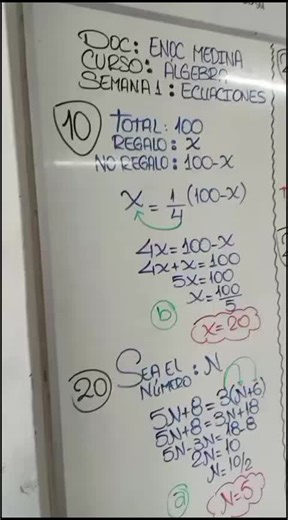 DOC: ENOC MEDINA
CURSO: ALGEBRA
SEMANA 1: ECUACIONES
10
TOTAL: 100
REGALO: X
NO REGALO: 100-X
X = 1/4 (100-X)
4X = 100-X
4X+X = 100
5X = 100
X = 100/5
b
X = 20
20
SEA EL NÚMERO: N
5N+8 = 3(N+6)
5N+8 = 3N+18
5N-3N = 18-8
2N = 10
N = 10/2
a
N = 5